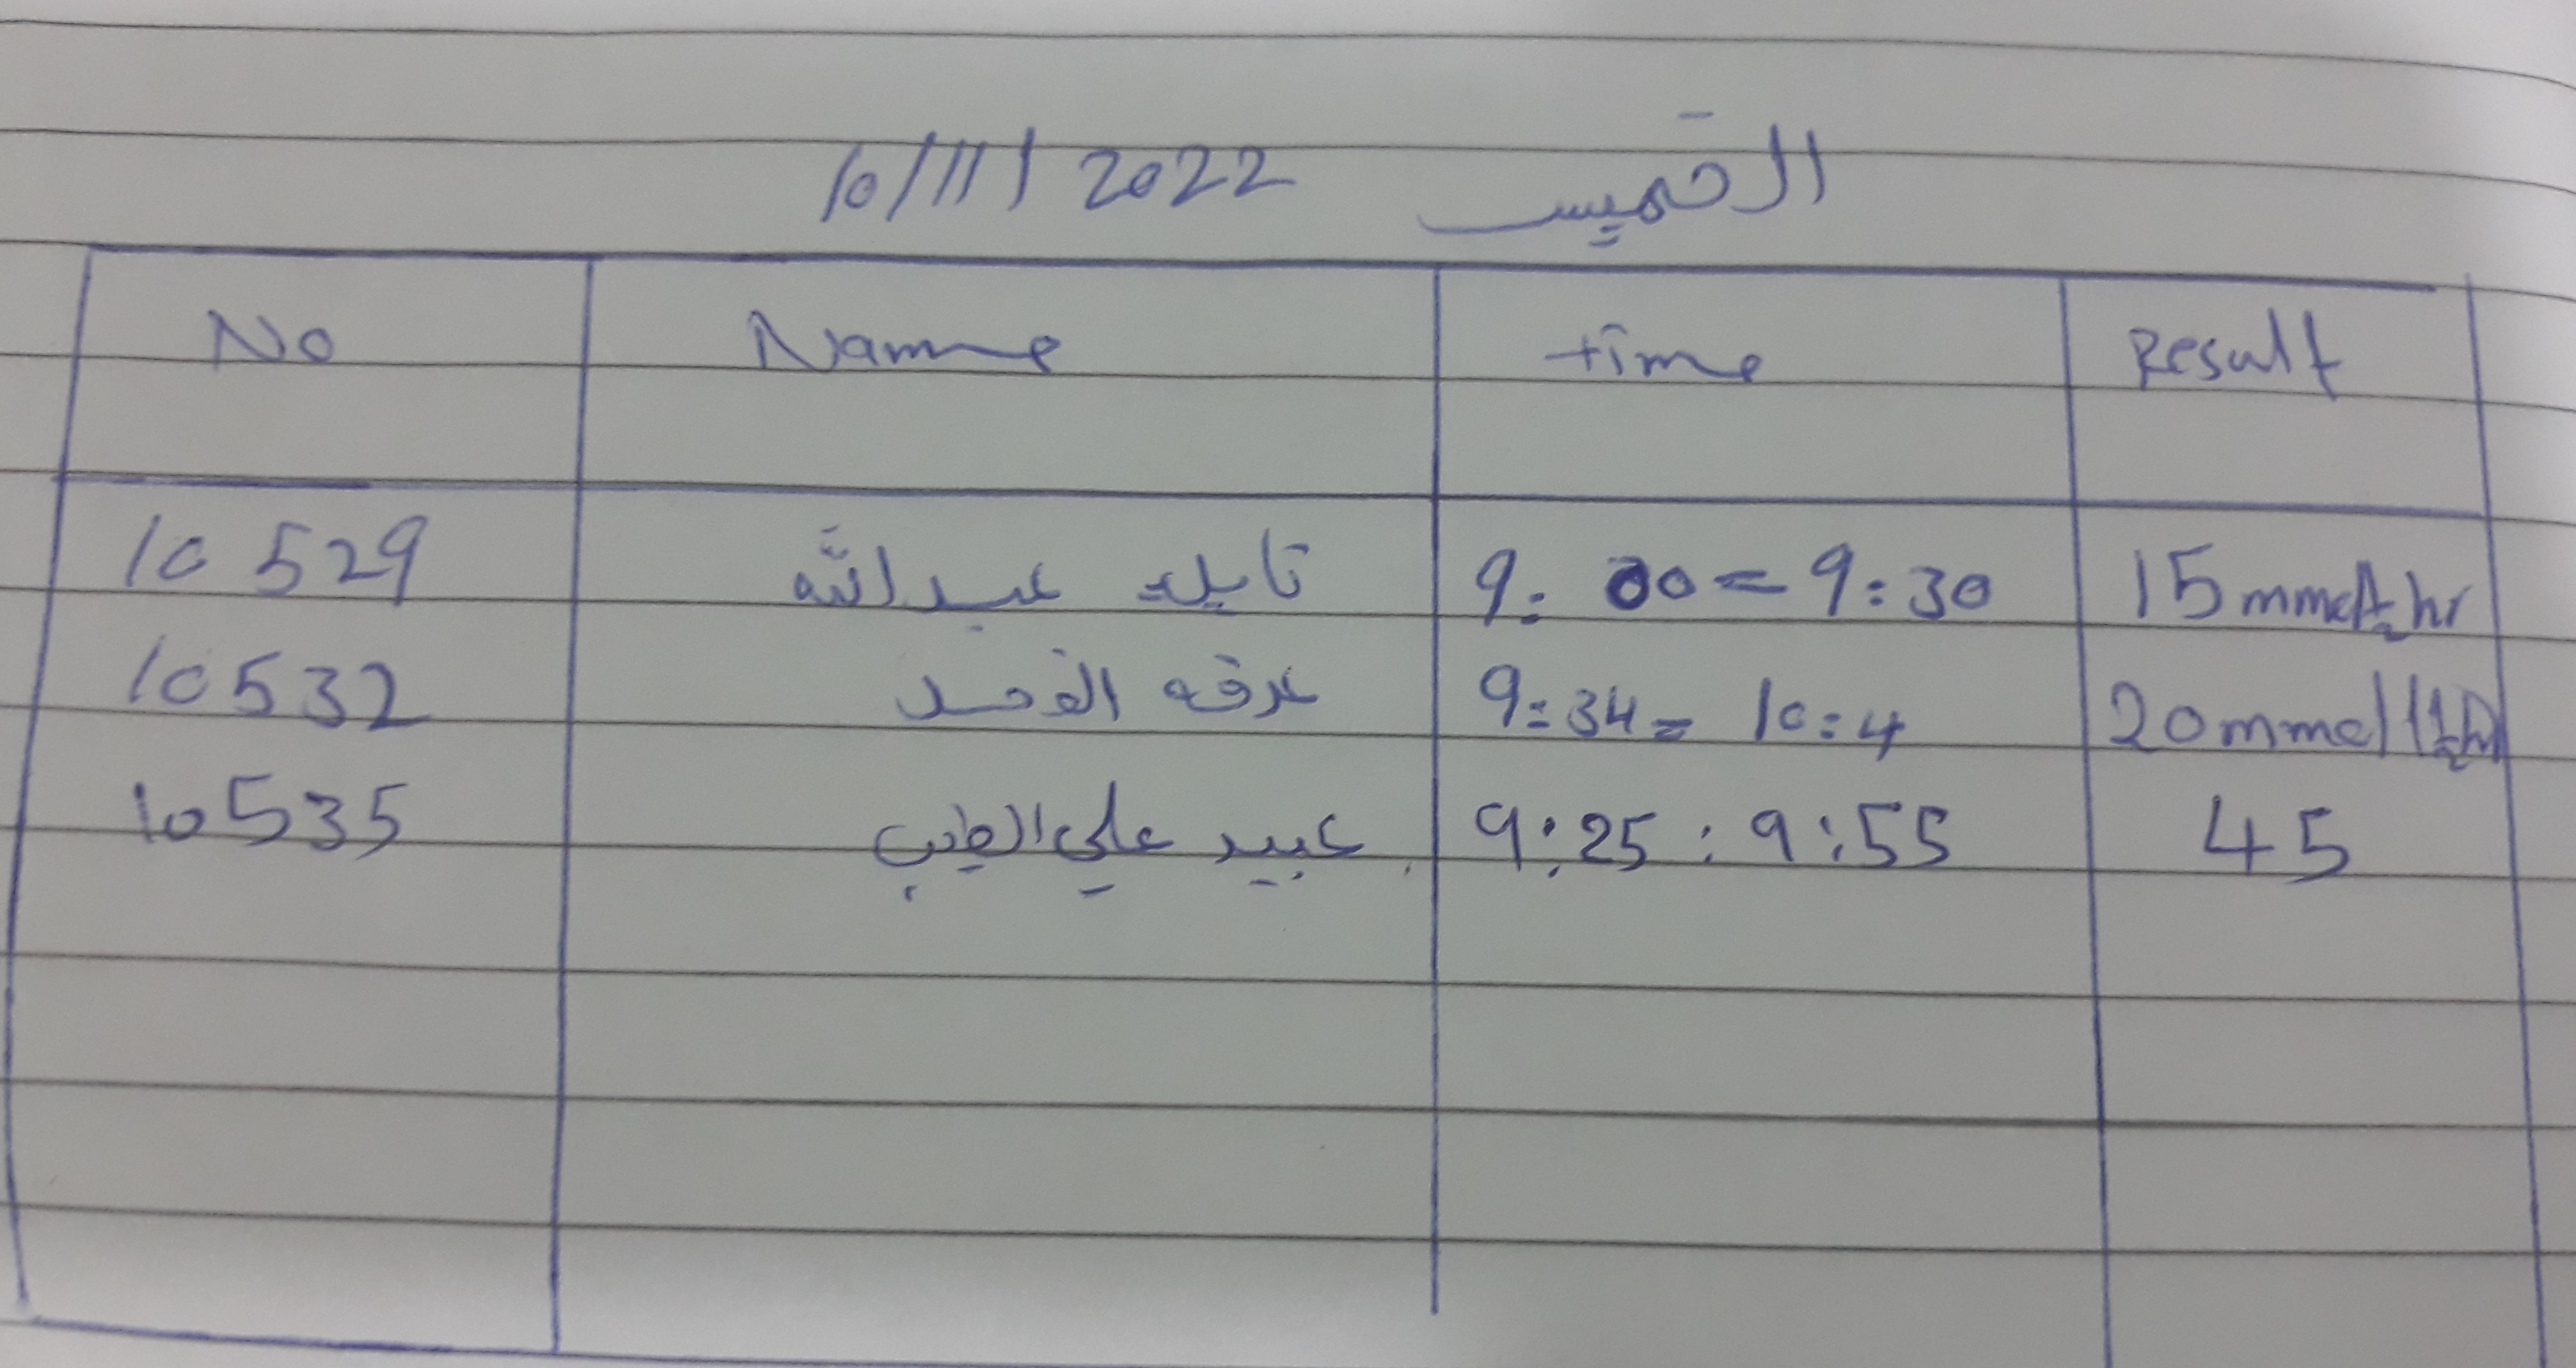 الخميس 10/11/2022
No Name time Result
10529 عبدالله 9:00=9:30 15 mm
10532 9:34=10:4 20mm
10535 عبيد علي الطيب 9:25:9:55 45